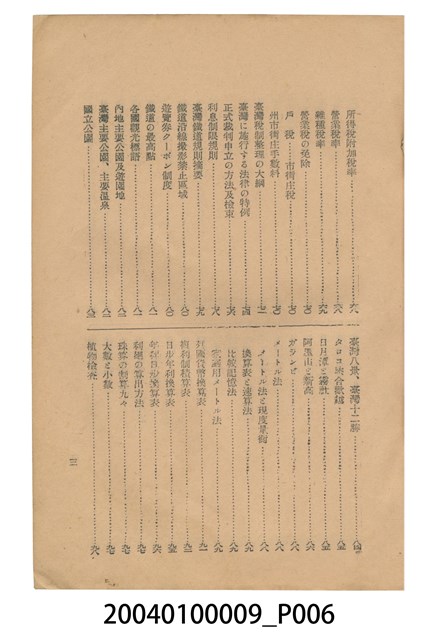 所得稅附加稅率
營業稅率
雜種稅率
營業稅の免除
戶稅……市街庄稅
州市街庄手數料
臺灣稅制整理の大綱
臺灣に施行する法律の特例
正式裁判申立の方法及檢束
利息制限規則
臺灣鐵道規則摘要
鐵道沿線撮影禁止區域
遊覽券クーポン制度
鐵道の最高點
各國觀光標語
內地主要公園及遊園地
臺灣主要公園、主要溫泉
國立公園
臺灣八景、臺灣十二勝
タロコ峽合歡越
日月潭と霧社
阿里山と新高
ガランピ
メートル法
メートル法と現度量衡
換算表と速算法
比較記憶法
家庭用メートル法
列國貨幣換算表
複利制積算表
日步年利換算表
年利日步換算表
利廻の算出方法
珠算の割算九々
大數と小數
植物檢査
三
20040100009_P006